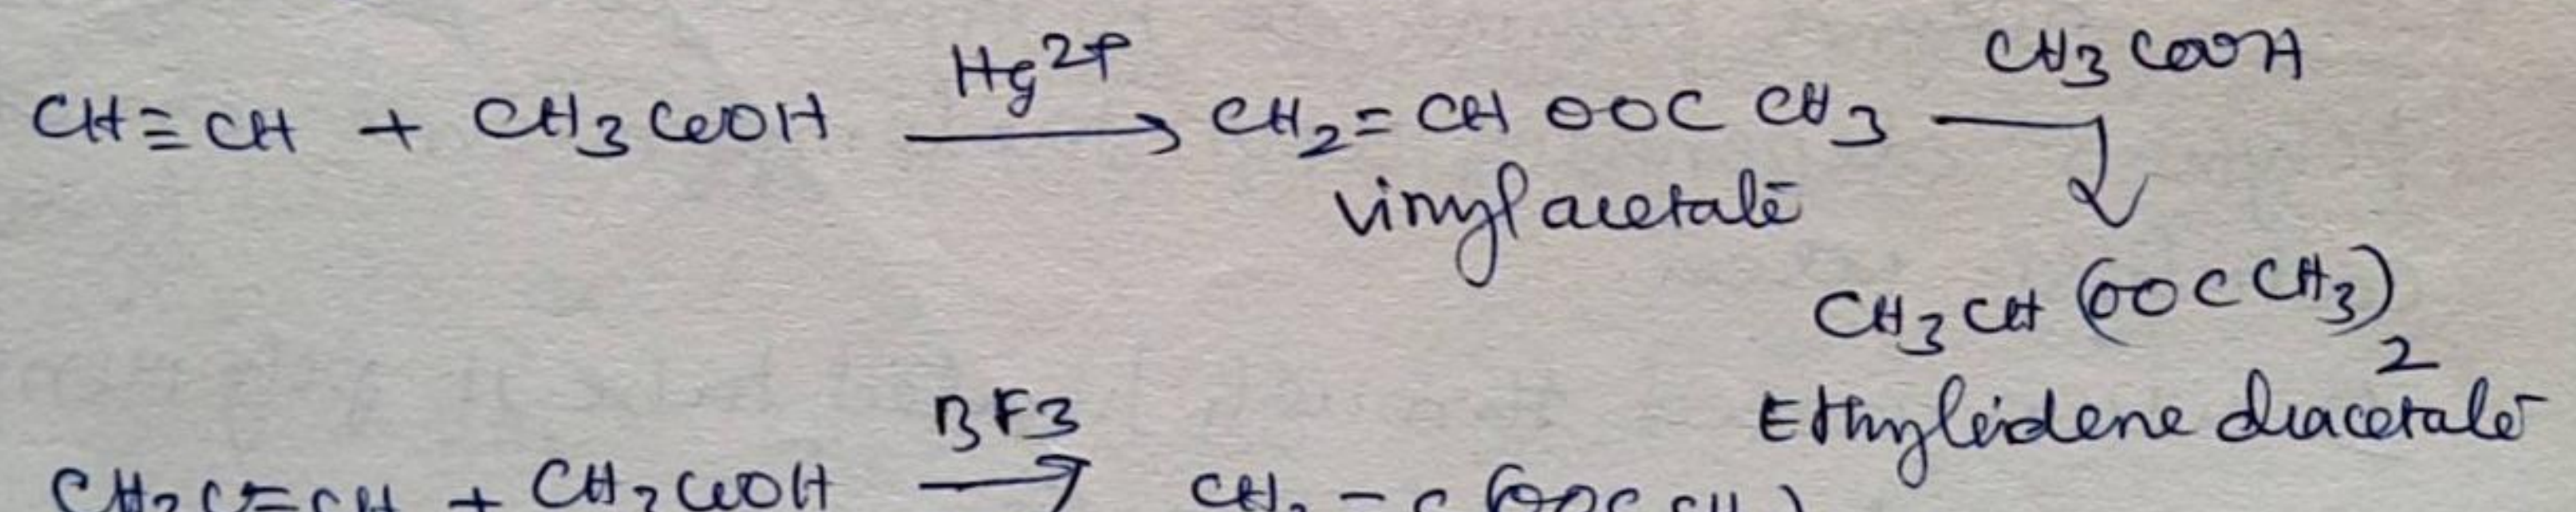 CH≡CH + CH3COOH Hg2+ → CH2=CHOOCCH3 CH3COOH
vinylacetate
CH3CH(OOCCH3)2
Ethyleidene diacetate
BF3
CH3C≡CH + CH3COOH →